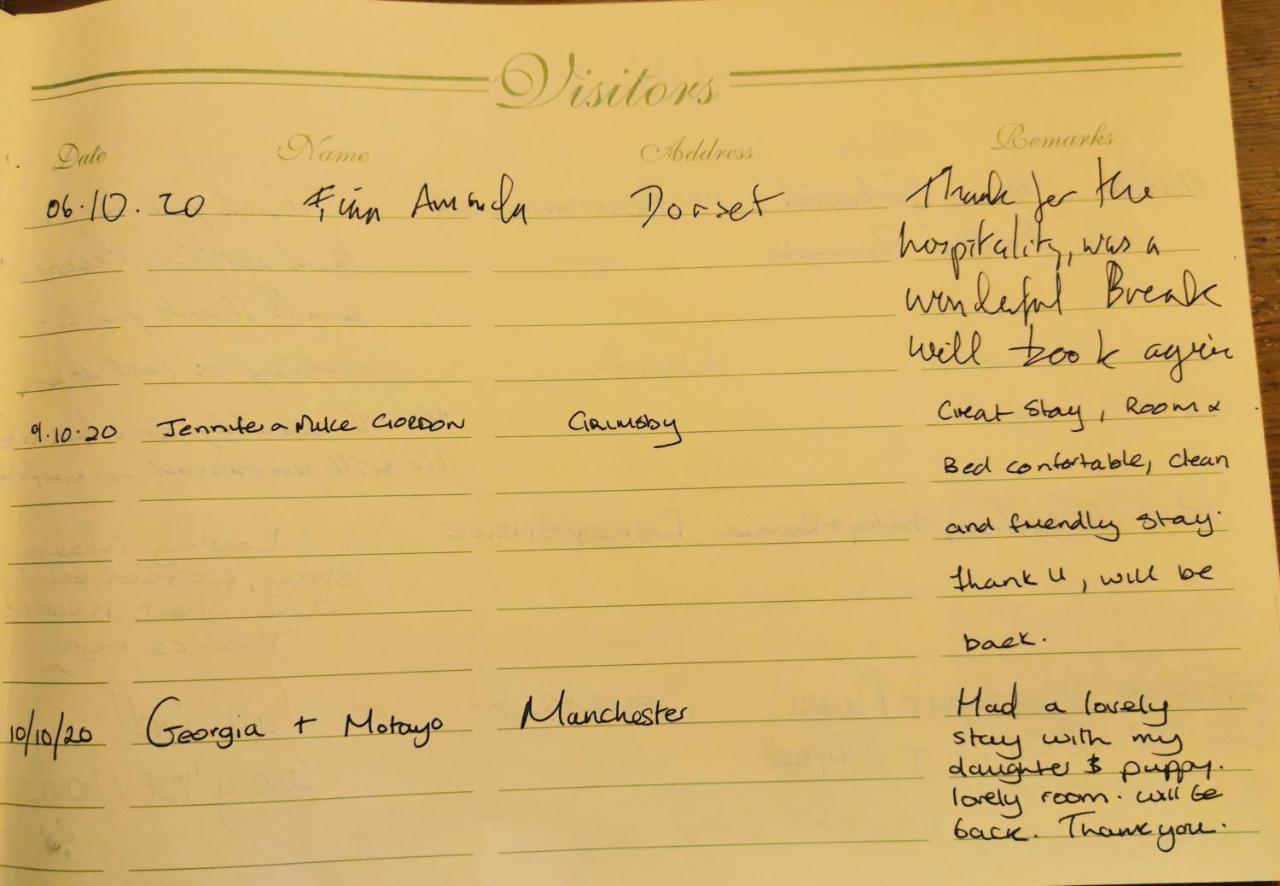 Visitors
Date Name Address Remarks
06.10.20 Finn Amanda Dorset Thank for the
hospitality, was a
wonderful Break
will book again
9.10.20 Jennifer & Mike GORDON GRIMSBY Great Stay, Room &
Bed confortable, clean
and friendly stay.
thank U, will be
back.
10/10/20 Georgia + Motayo Manchester Had a lovely
stay with my
daughter & puppy.
lovely room. will be
back. Thankyou.